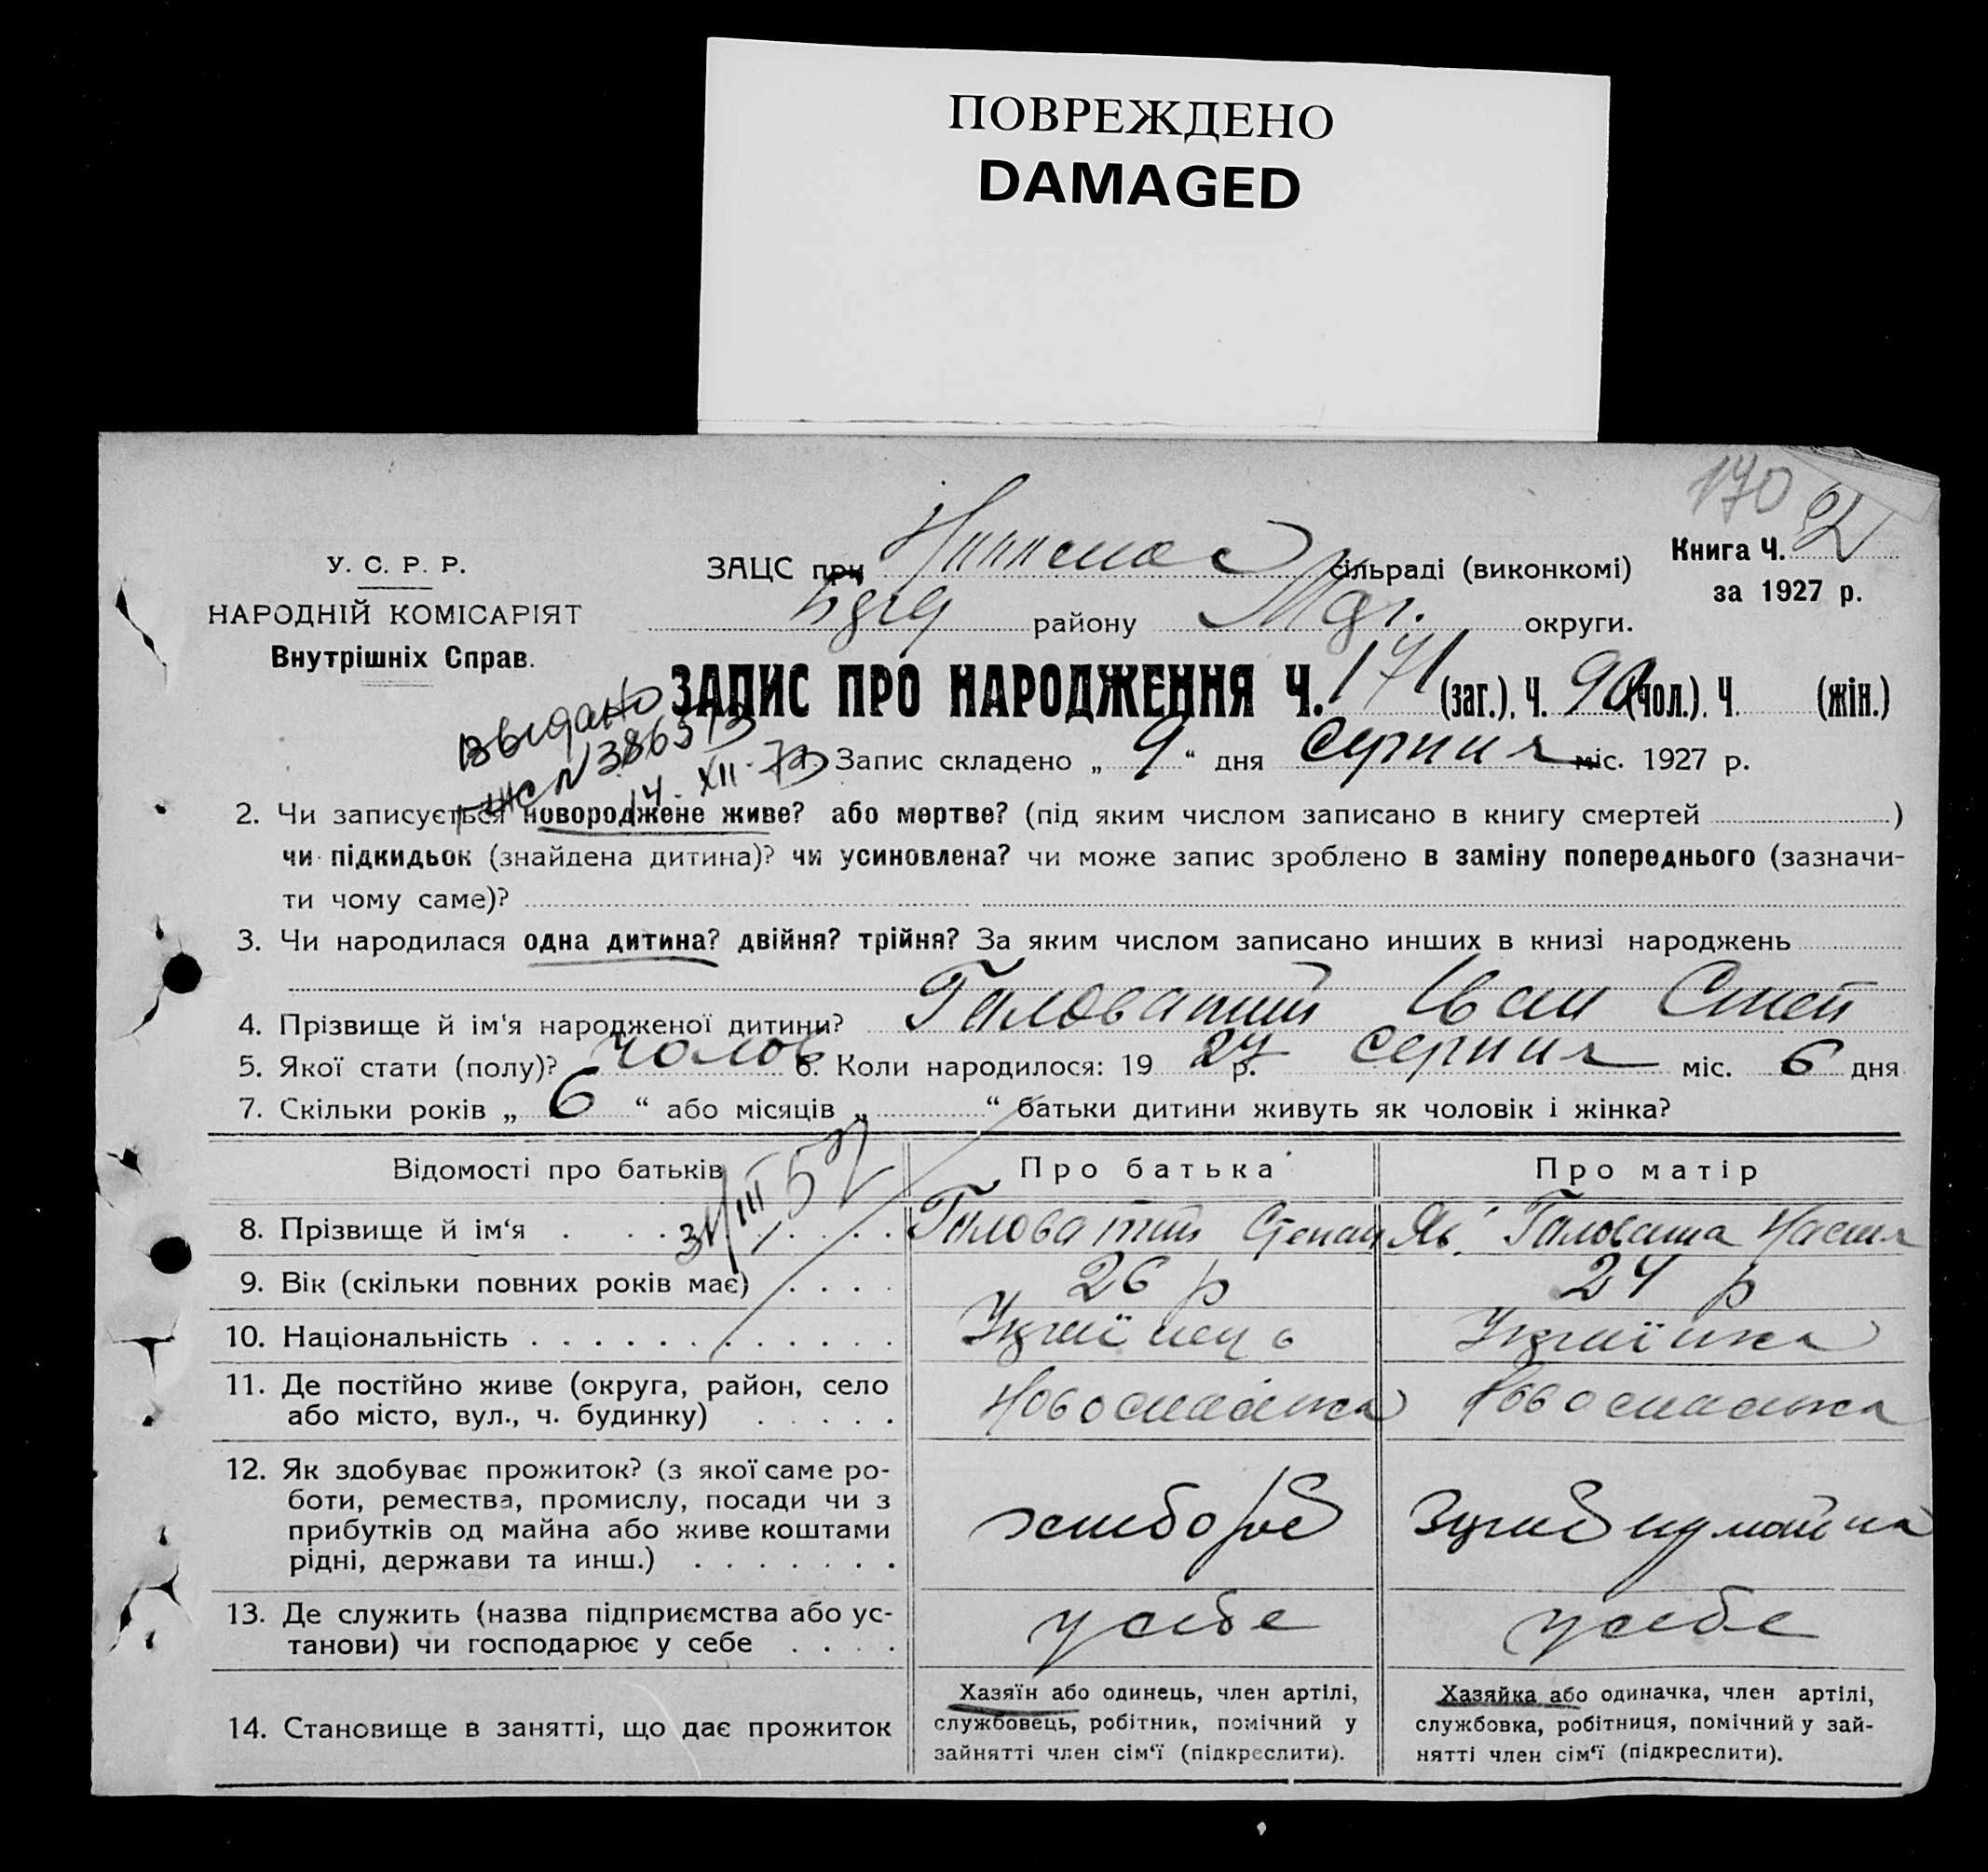 ПОВРЕЖДЕНО
DAMAGED
170
У. С. Р. Р.
НАРОДНІЙ КОМІСАРІЯТ
Внутрішніх Справ.
ЗАЦС при сільраді (виконкомі)
району округи.
Книга Ч. 2
за 1927 р.
ЗАПИС ПРО НАРОДЖЕННЯ Ч. 171 (заг.), Ч. 90 (чол.). Ч. (жін.)
Видано
14. XII. 73
1. Запис складено „ 9 “ дня Серпня міс. 1927 р.
2. Чи записується новороджене живе? або мертве? (під яким числом записано в книгу смертей )
чи підкидьок (знайдена дитина)? чи усиновлена? чи може запис зроблено в заміну попереднього (зазначи-
ти чому саме)?
3. Чи народилася одна дитина? двійня? трійня? За яким числом записано инших в книзі народжень
4. Прізвище й ім‘я народженої дитини? Головатий Іван Степ
5. Якої стати (полу)? чолов 6. Коли народилося: 19 27 р. Серпня міс. 6 дня
7. Скільки років „ 6 “ або місяців „ “ батьки дитини живуть як чоловік і жінка?
Відомості про батьків
Про батька
Про матір
8. Прізвище й ім‘я . . . . . . . . Головатий Степан Як. Головата Настя
9. Вік (скільки повних років має) . . . . 26 р 24 р
10. Національність . . . . . . . . . . . . Українець Українка
11. Де постійно живе (округа, район, село
або місто, вул., ч. будинку) . . . . . Новоспаська Новоспаська
12. Як здобуває прожиток? (з якої саме ро-
боти, ремества, промислу, посади чи з
прибутків од майна або живе коштами
рідні, держави та инш.) . . . . . . . хлібороб
13. Де служить (назва підприємства або ус-
танови) чи господарює у себе . . . . у себе у себе
14. Становище в занятті, що дає прожиток
Хазяїн або одинець, член артілі,
службовець, робітник, помічний у
зайнятті член сім‘ї (підкреслити).
Хазяйка або одиначка, член артілі,
службовка, робітниця, помічний у зай-
нятті член сім‘ї (підкреслити).